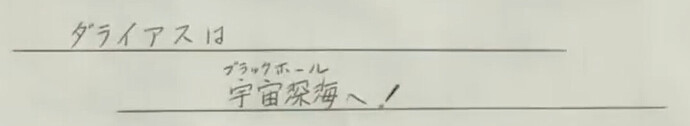 ダライアスは
ブラックホール
宇宙深海へ!